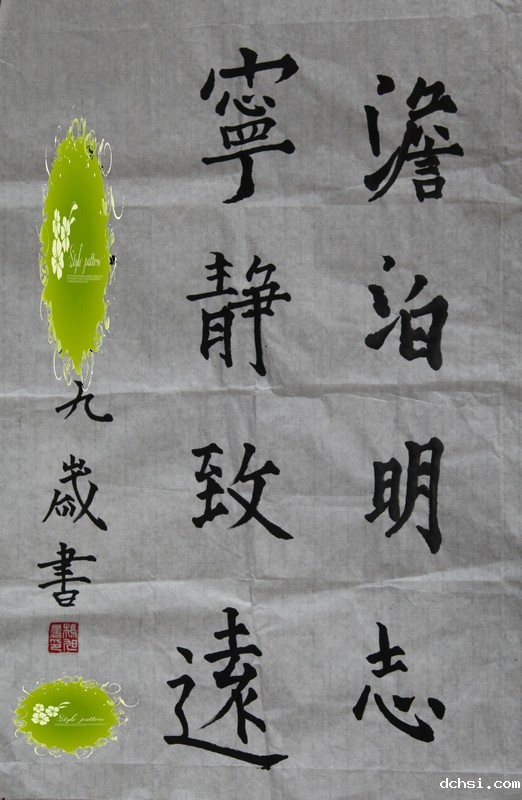 澹泊明志
寧靜致遠
九歲書
Style pattern
Style pattern
dchsi.com